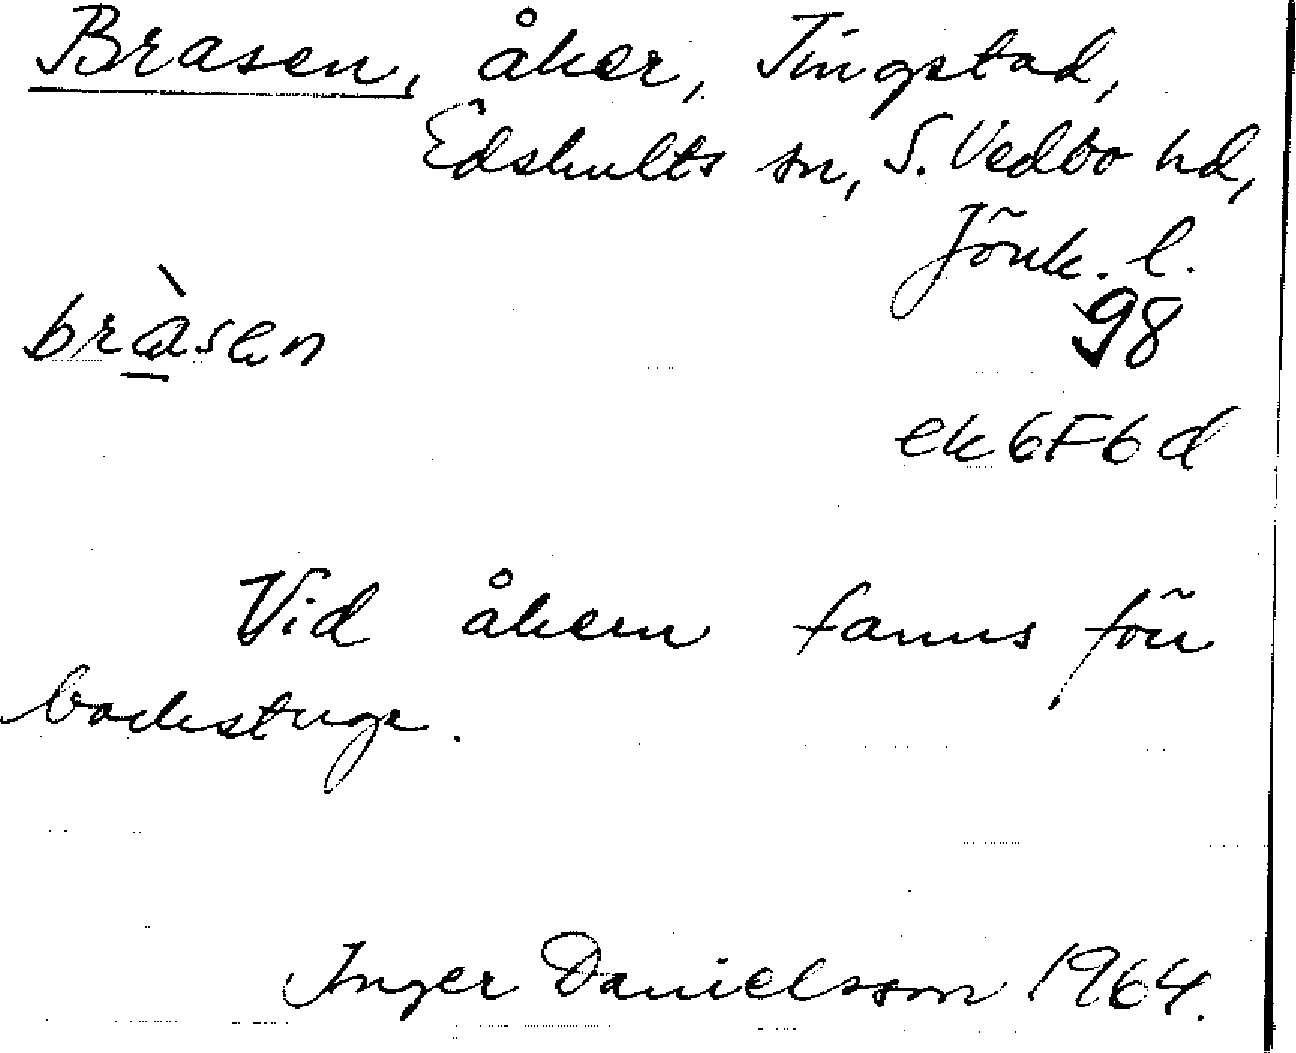 Brasen, åker, Tingstad,
Edshults sn, S. Vedbo hd,
Jönk. l.
bràsen 98
ek 6F6d
Vid åkern fanns förr
backstuga.
Inger Danielsson 1964.